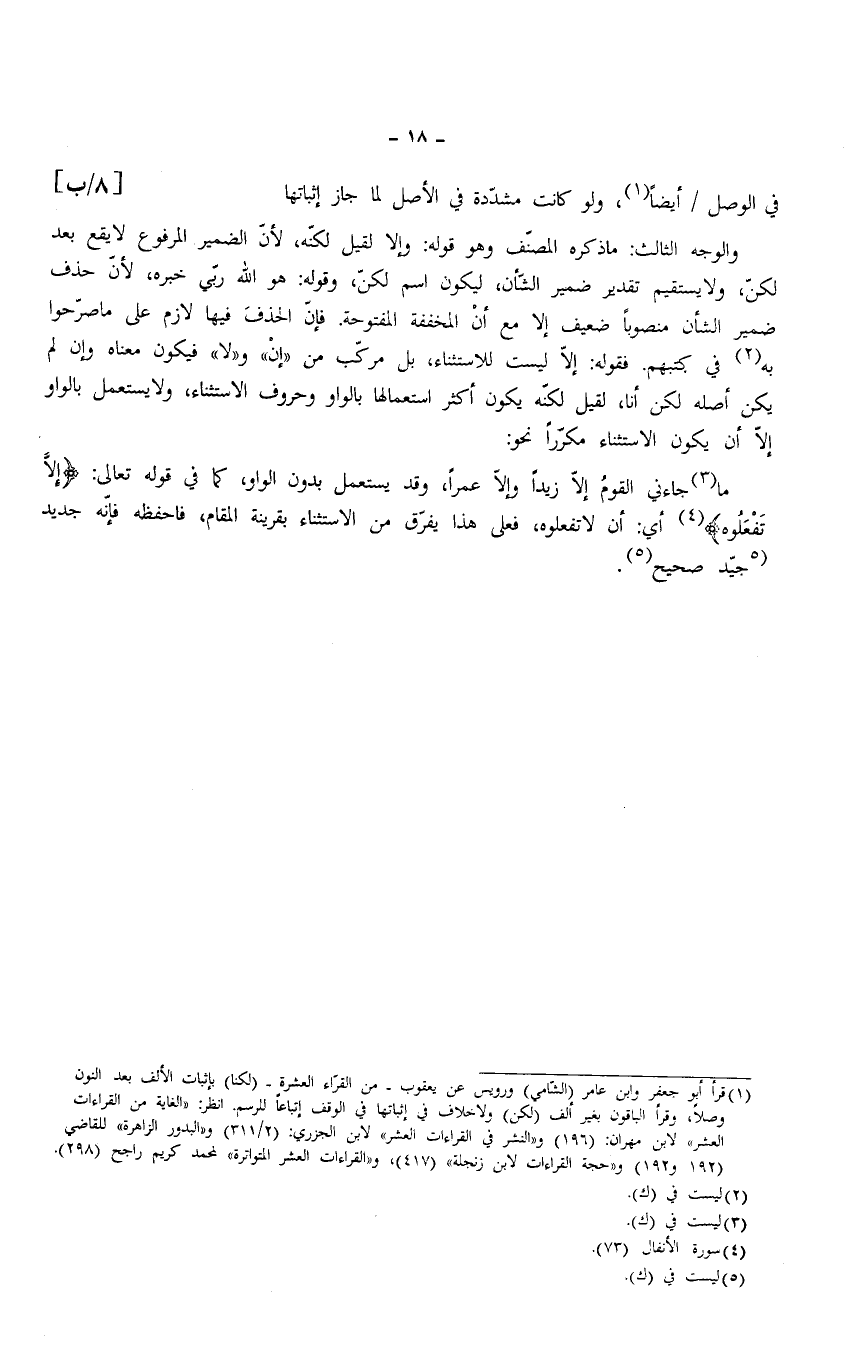 - ١٨ -
في الوصل / أيضاً(١)، ولو كانت مشدّدة في الأصل لما جاز إثباتها [٨/ب]
والوجه الثالث: ماذكره المصنّف وهو قوله: وإلا لقيل لكنّه، لأنّ الضمير المرفوع لايقع بعد
لكنّ، ولايستقيم تقدير ضمير الشّأن، ليكون اسم لكنّ، وقوله: هو الله ربّي خبره، لأنّ حذف
ضمير الشأن منصوباً ضعيف إلا مع أنْ المخففة المفتوحة. فإنّ الحذفَ فيها لازم على ماصرّحوا
به(٢) في كتبهم. فقوله: إلاّ ليست للاستثناء، بل مركّب من «إنْ» و«لا» فيكون معناه وإن لم
يكن أصله لكن أنا، لقيل لكنّه يكون أكثر استعمالها بالواو وحروف الاستثناء، ولايستعمل بالواو
إلاّ أن يكون الاستثناء مكرّراً نحو:
ما(٣)جاءني القومُ إلاّ زيداً وإلاّ عمراً، وقد يستعمل بدون الواو، كما في قوله تعالى: ﴿إِلاَّ
تَفْعَلُوه﴾(٤) أي: أن لاتفعلوه، فعلى هذا يفرّق من الاستثناء بقرينة المقام، فاحفظه فإنّه جديد
(٥جيّد صحيح(٥).
(١)قرأ أبو جعفر وابن عامر (الشّامي) ورويس عن يعقوب - من القرّاء العشرة - (لكنا) بإثبات الألف بعد النون
وصلاً، وقرأ الباقون بغير ألف (لكن) ولاخلاف في إثباتها في الوقف إتباعاً للرسم. انظر: «الغاية من القراءات
العشر» لابن مهران: (١٩٦) و«النشر في القراءات العشر» لابن الجزري: (٣١١/٢) و«البدور الزاهرة» للقاضي
(١٩٢ و١٩٢) و«حجة القراءات لابن زنجلة» (٤١٧)، و«القراءات العشر المتواترة» لمحمد كريم راجح (٢٩٨).
(٢)ليست في (ك).
(٣)ليست في (ك).
(٤)سورة الأنفال (٧٣).
(٥)ليست في (ك).